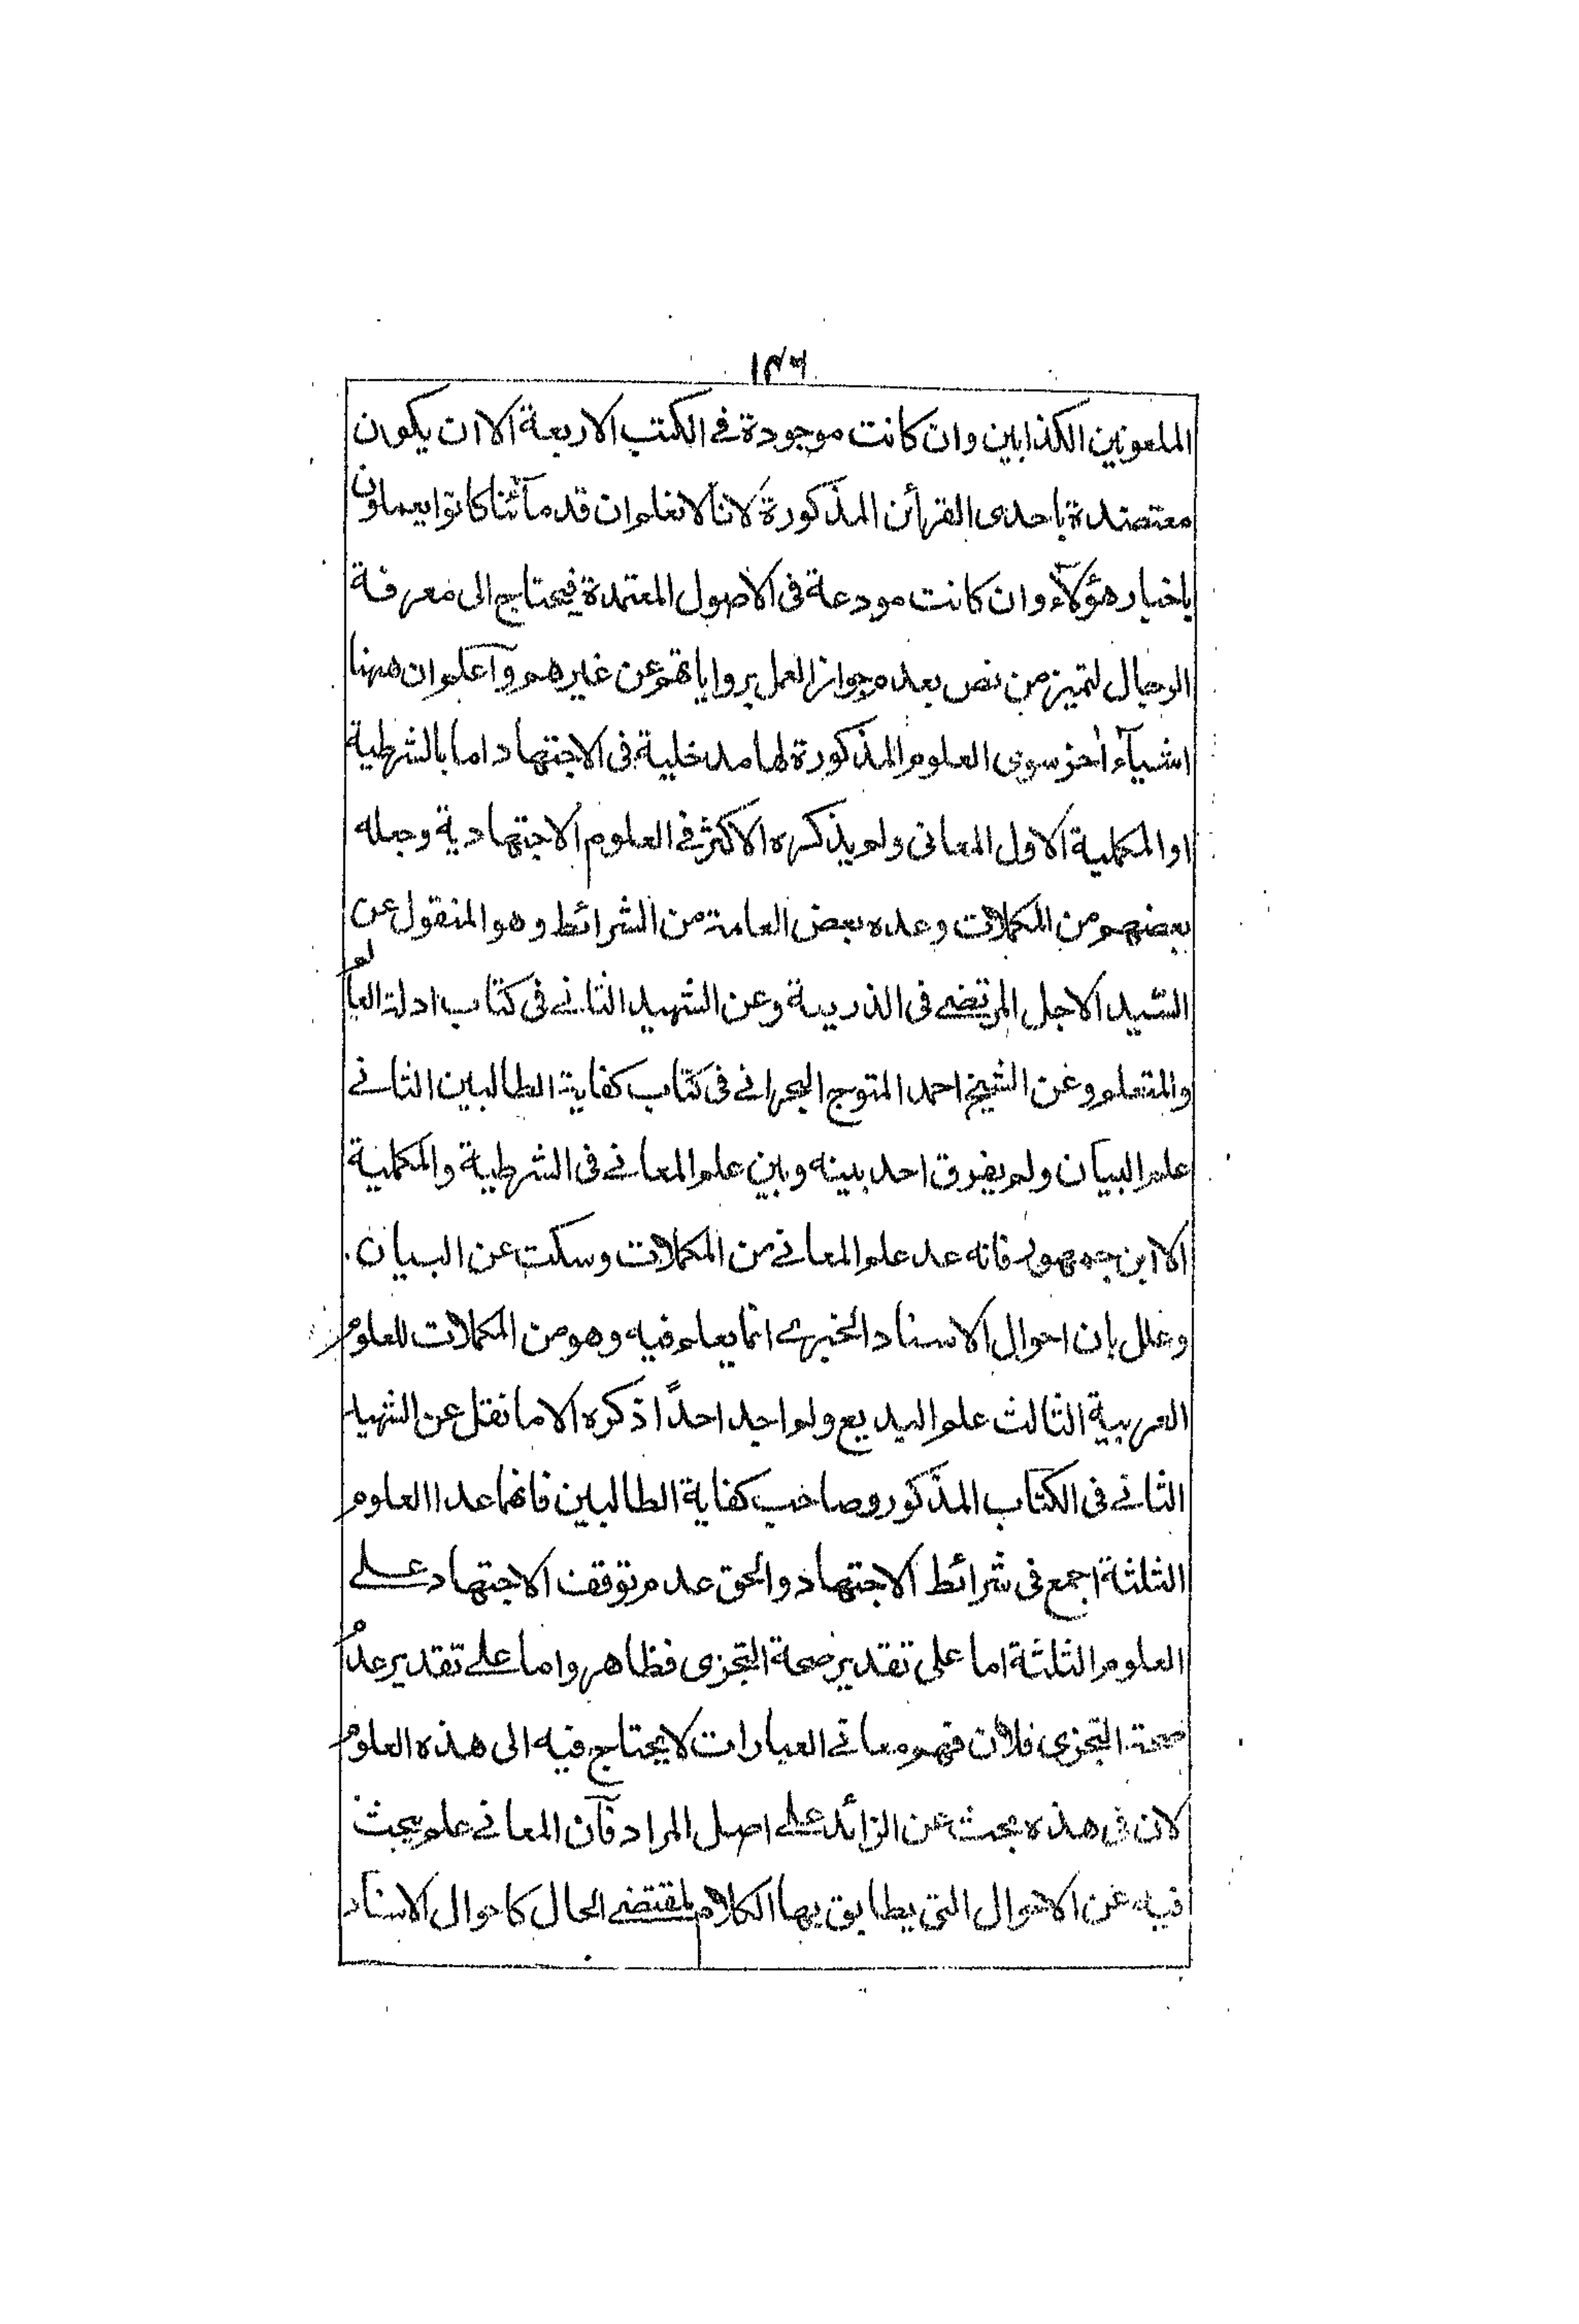 ١٣٦
الملعونين الكذابين وان كانت موجودة في الكتب الاربعة الا ان يكون
معتضدة باحدى القرائن المذكورة لانا لا نعلم ان قدمائنا كانوا يعملون
باخبار هؤلاء وان كانت مودعة فى الاصول المعتمدة فيحتاج الى معرفة
الرجال لتميز من نص بعدم جواز العمل برواياتهم عن غيرهم وآعلم ان ههنا
اشيآء أخر سوى العلوم المذكورة لها مدخلية فى الاجتهاد اما بالشرطية
او المكملية الاول المعانى ولم يذكره الاكثر في العلوم الاجتهادية وجعله
بعضهم من المكملات وعده بعض العامة من الشرائط وهو المنقول عن
السيد الاجل المرتضے فى الذريعة وعن الشهيد الثانے فى كتاب ادلة العالم
والمتعلم وعن الشيخ احمد المتوج البحرانے فى كتاب كفاية الطالبين الثانے
علم البيان ولم يفرق احد بينه وبين علم المعانے فى الشرطية والمكملية
الا ابن جمهور فانه عد علم المعانے من المكملات وسكت عن البيان.
وعلل بان احوال الاسناد الخبرے انما يعلم فيه وهو من المكملات للعلوم
العربية الثالث علم البديع ولم اجد احدًا ذكره الا ما نقل عن الشهيد
الثانے فى الكتاب المذكور وصاحب كفاية الطالبين فانهما عدا العلوم
الثلثة اجمع فى شرائط الاجتهاد والحق عدم توقف الاجتهاد علے
العلوم الثلثة اما على تقدير صحة التجزى فظاهر واما علے تقدير عدم
صحة التجزى فلان فهم معانے العبارات لا يحتاج فيه الى هذه العلوم
لان فى هذه يبحث عن الزائد علے اصل المراد فآن المعانے علم يبحث
فيه عن الاحوال التى يطابق بها الكلام لمقتضے الحال كاحوال الاسناد